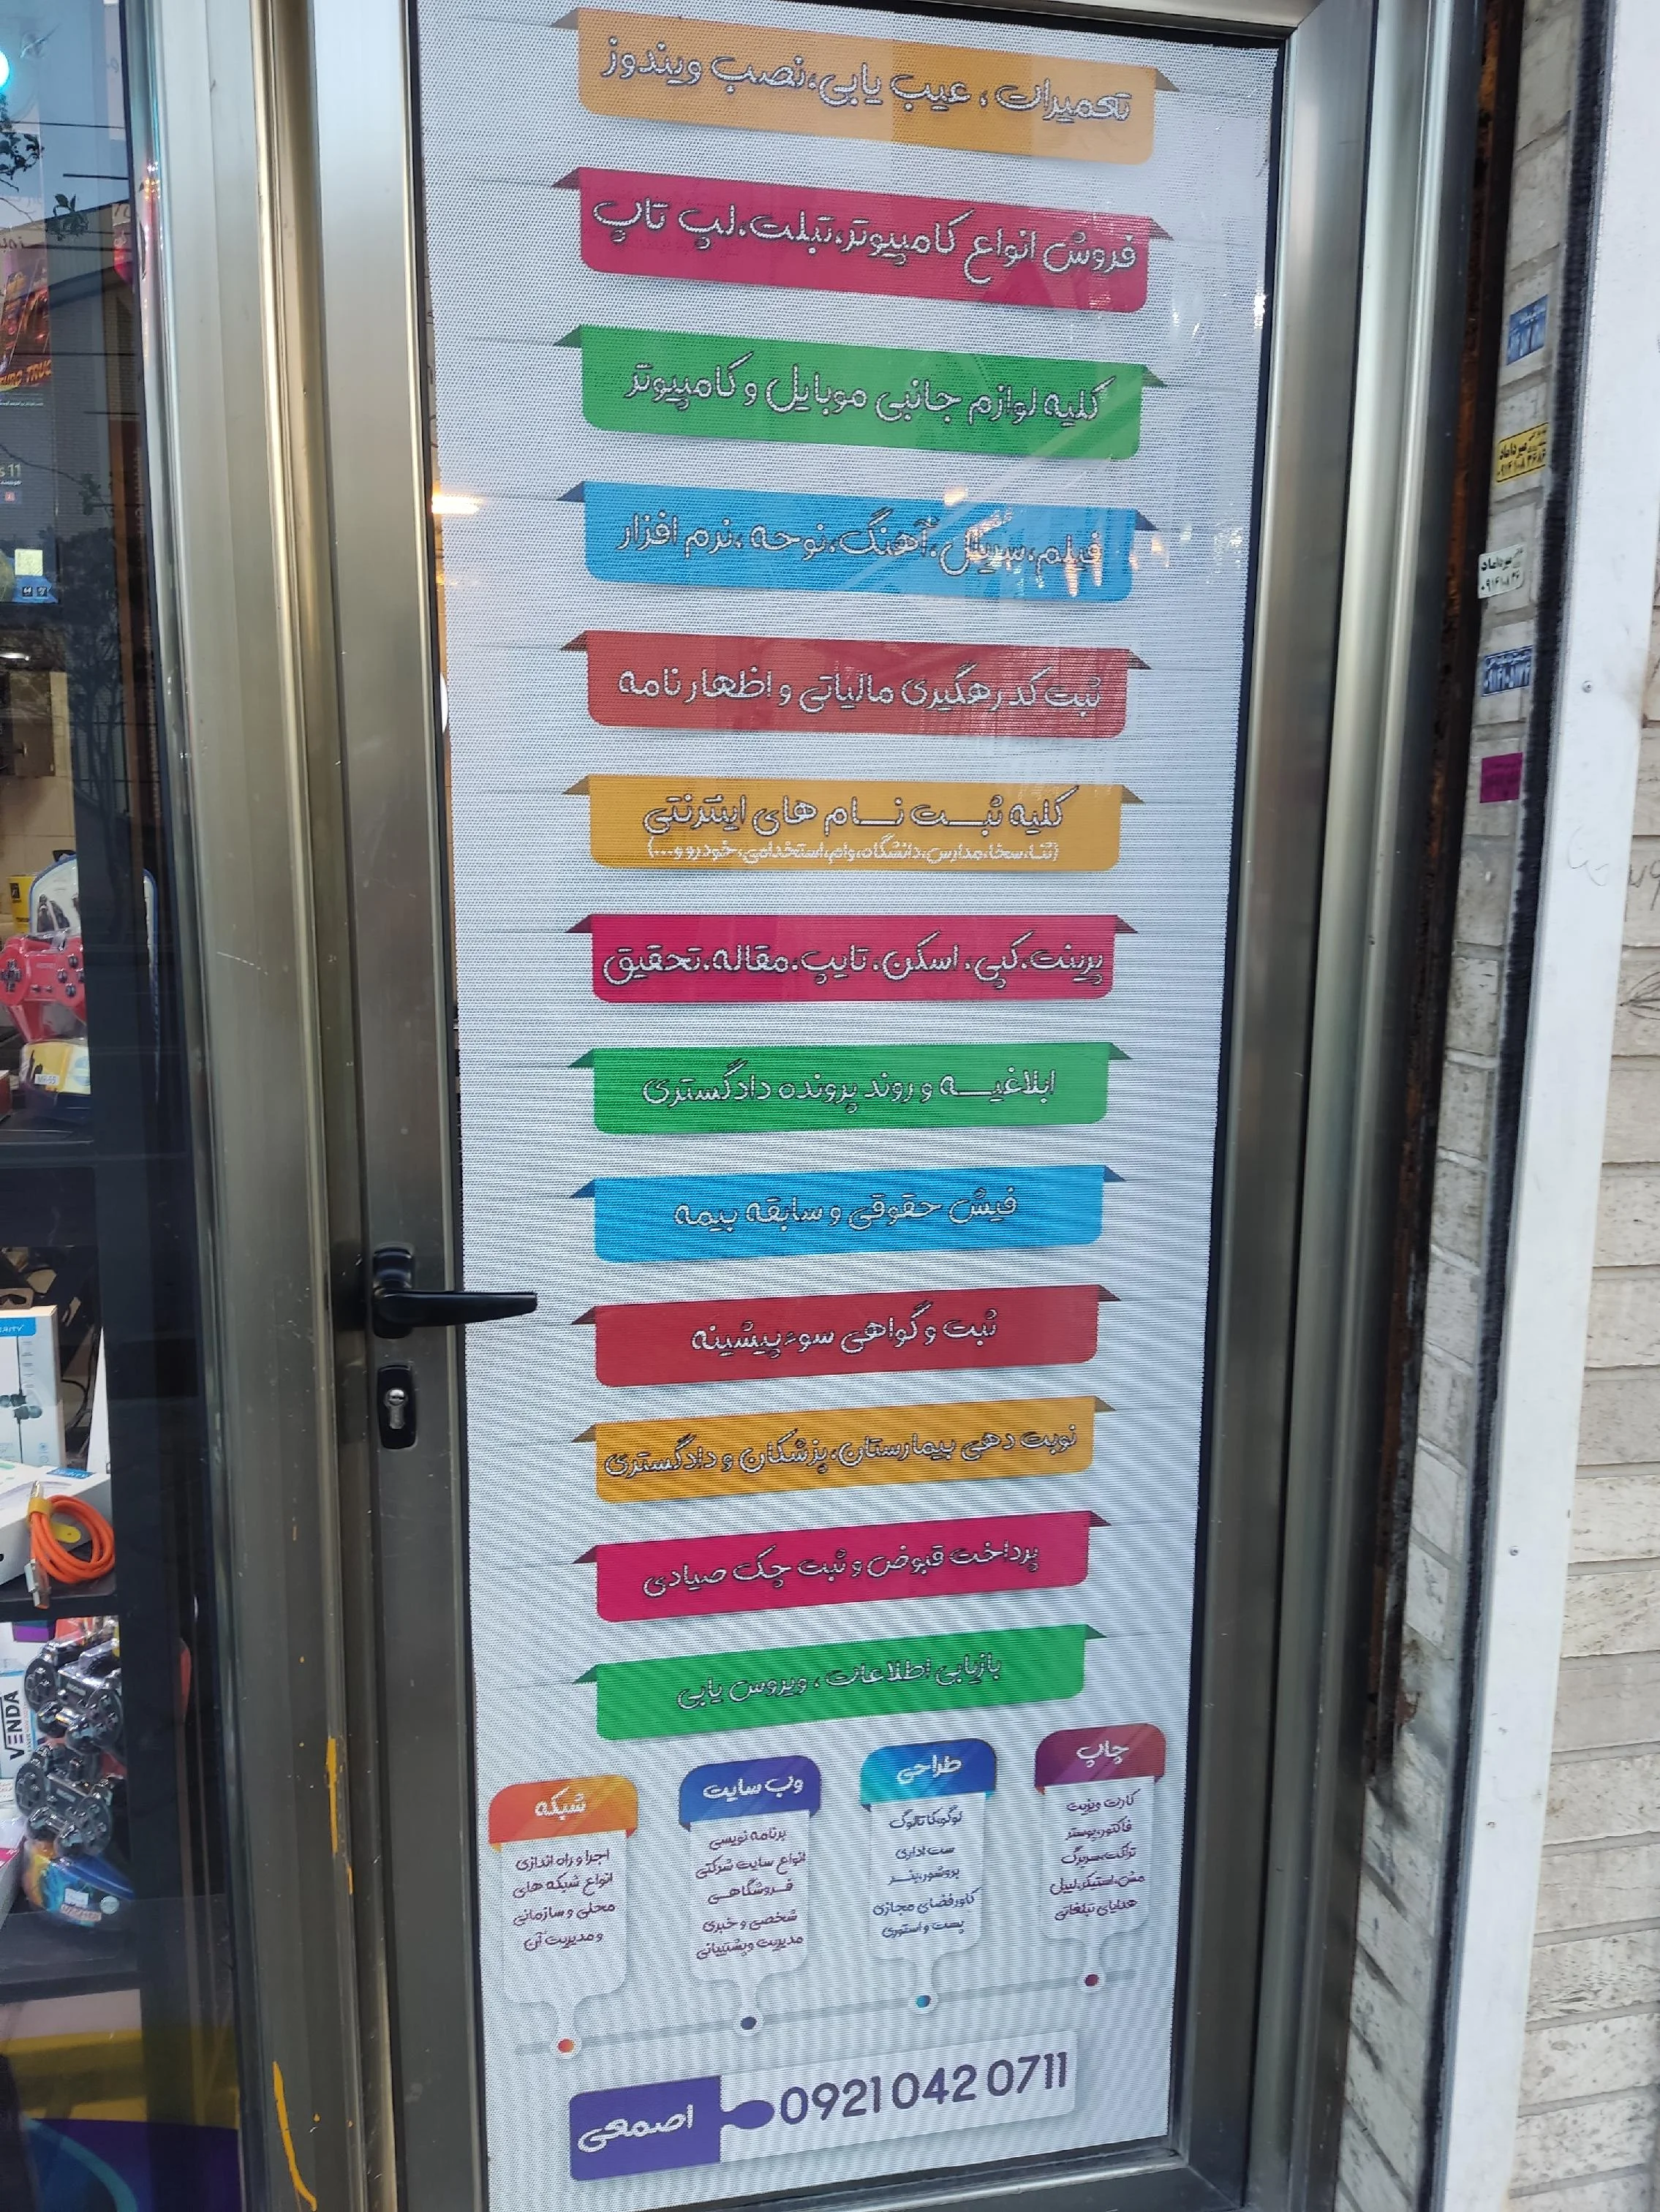 تعمیرات ، عیب یابی،نصب ویندوز
فروش انواع کامپیوتر،تبلت،لپ تاپ
کلیه لوازم جانبی موبایل و کامپیوتر
فیلم،سریال،آهنگ،نوحه،نرم افزار
ثبت کد رهگیری مالیاتی و اظهار نامه
کلیه ثبت نام های اینترنتی
(ثنا،سخا،مدارس،دانشگاه،وام،استخدامی،خودرو و...)
پرینت،کپی، اسکن، تایپ،مقاله،تحقیق
ابلاغیه و روند پرونده دادگستری
فیش حقوقی و سابقه بیمه
ثبت و گواهی سوءپیشینه
نوبت دهی بیمارستان،پزشکان و دادگستری
پرداخت قبوض و ثبت چک صیادی
بازیابی اطلاعات ، ویروس یابی
چاپ
کارت ویزیت
فاکتور،پوستر
تراکت،سربرگ
مش،استیکر،لیبل
هدایای تبلغاتی
طراحی
لوگو،کاتالوگ
ست اداری
بروشور،بنر
کاور فضای مجازی
پست و استوری
وب سایت
برنامه نویسی
انواع سایت شرکتی
فروشگاهی
شخصی و خبری
مدیریت وپشتیبانی
شبکه
اجرا و راه اندازی
انواع شبکه های
محلی و سازمانی
و مدیریت آن
اصمعی
0921 042 0711
VENDA
میرداماد